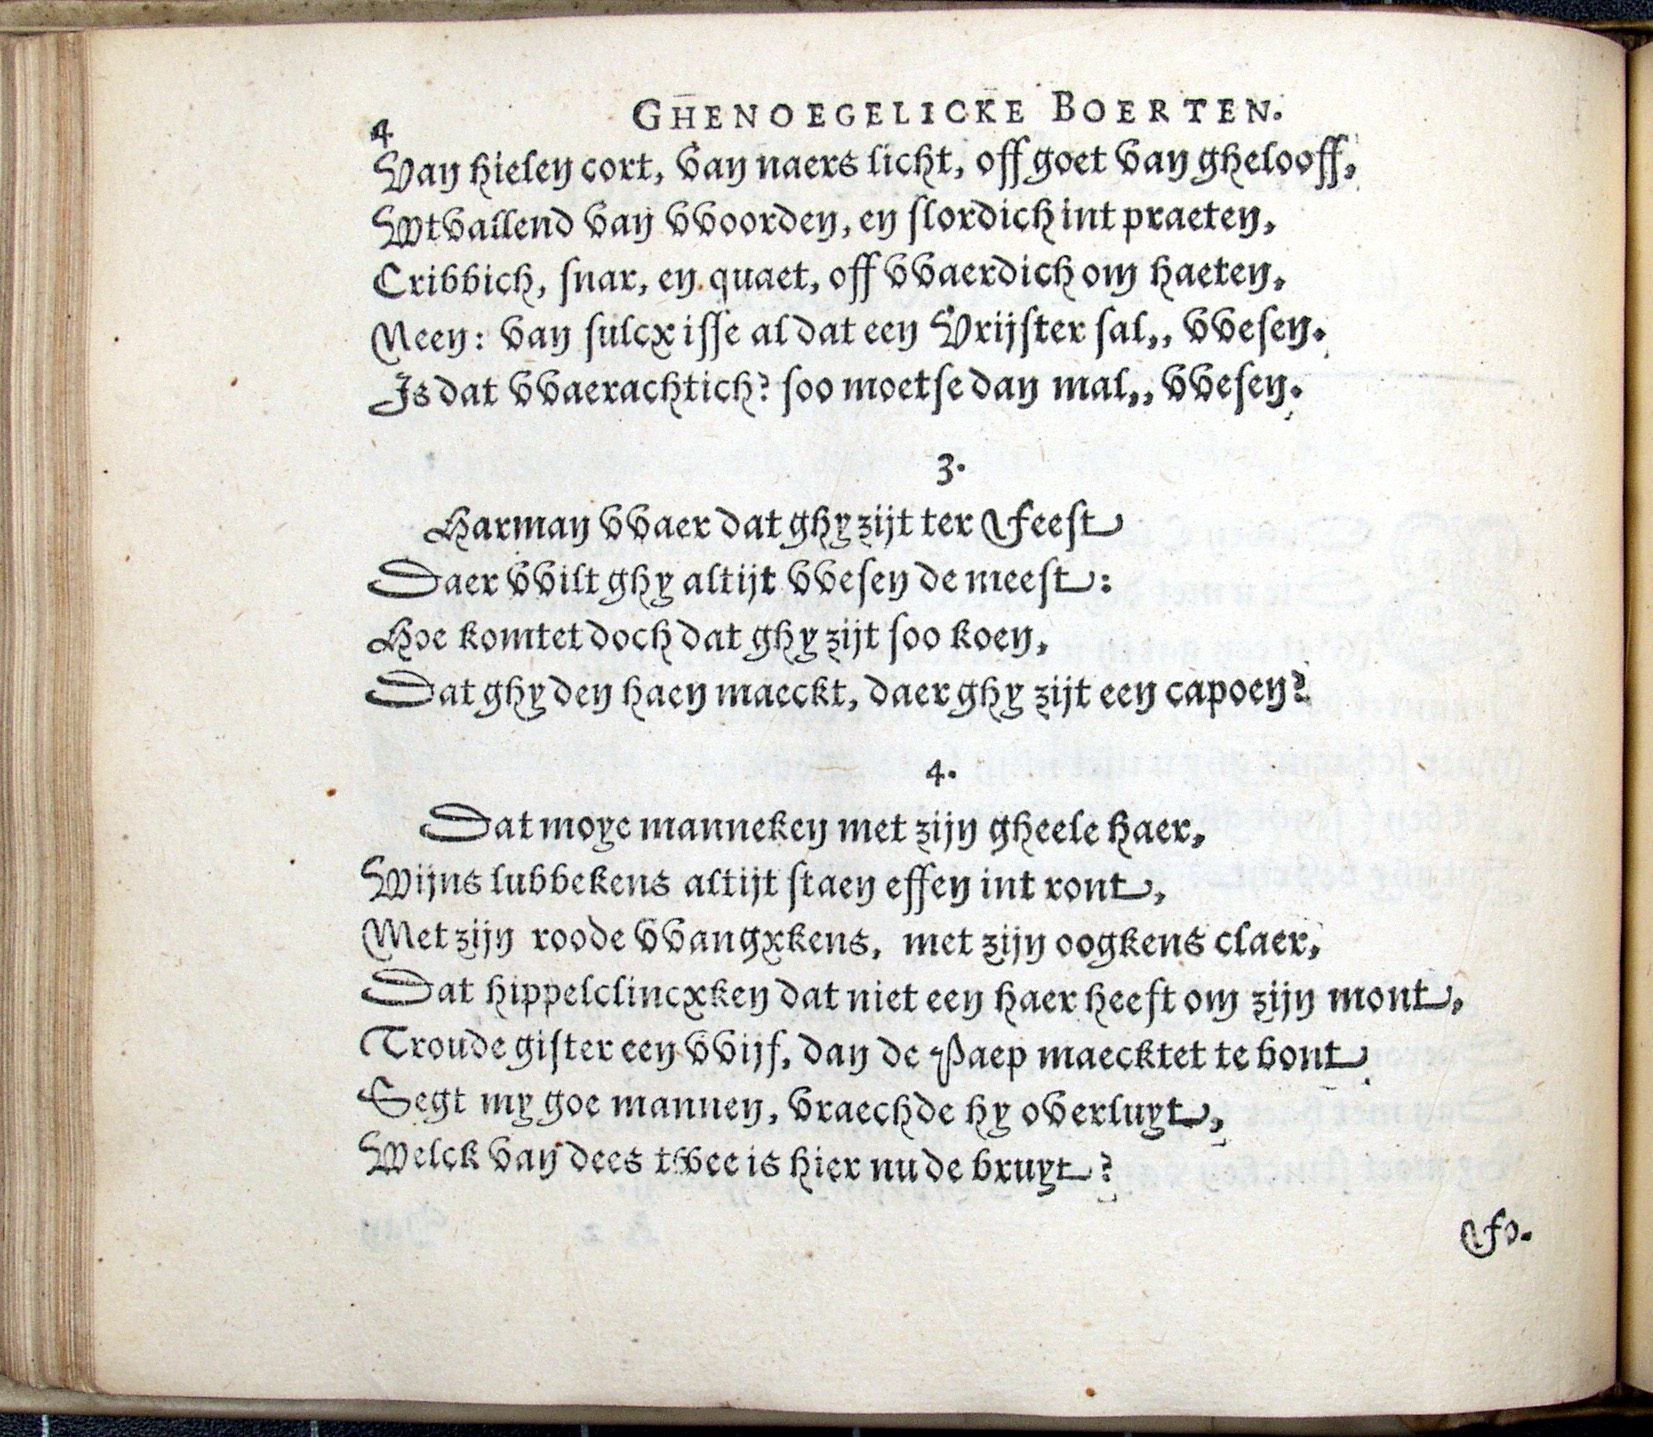 4 GHENOEGELICKE BOERTEN.
Van hielen cort, van naers licht, off goet van ghelooff,
Wtvallend van vvoorden, en slordich int praeten,
Cribbich, snar, en quaet, off vvaerdich om haeten,
Neen: van sulcx isse al dat een Vrijster sal,, vvesen.
Is dat vvaerachtich? soo moetse dan mal,, vvesen.
3.
Harman vvaer dat ghy zijt ter Feest
Daer vvilt ghy altijt vvesen de meest:
Hoe komtet doch dat ghy zijt soo koen,
Dat ghy den haen maeckt, daer ghy zijt een capoen?
4.
Dat moye manneken met zijn gheele haer,
Wijns lubbekens altijt staen effen int ront,
Met zijn roode vvangxkens, met zijn oogkens claer,
Dat hippelclincxken dat niet een haer heeft om zijn mont,
Troude gister een vvijf, dan de Paep maecktet te bont
Segt my goe mannen, vraechde hy overluyt,
Welck van dees twee is hier nu de bruyt?
Fo.